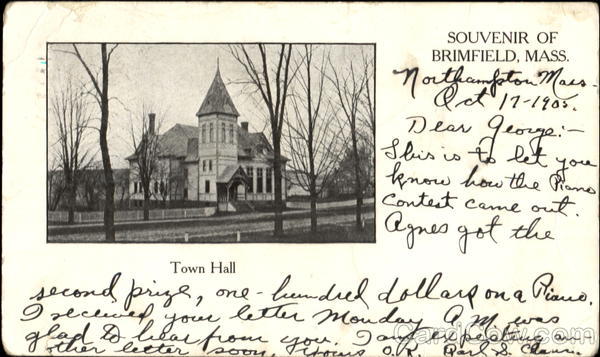 SOUVENIR OF
BRIMFIELD, MASS.
Northampton Mass.
Oct 17-1905.
Dear George:-
This is to let you
know how the Piano
Contest came out.
Agnes got the
Town Hall
second prize, one-hundred dollars on a Piano.
I received your letter Monday A.M. was
glad to hear from you. I am expecting an
other letter soon. Yours O.K.
CardCow.com